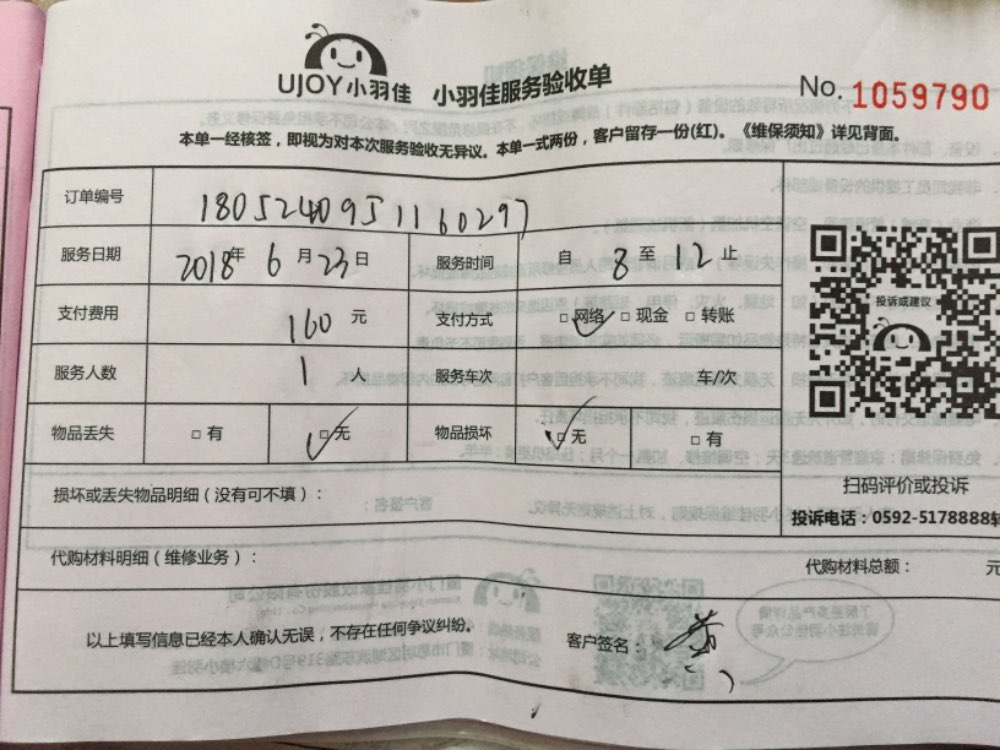 UJOY小羽佳 小羽佳服务验收单
No. 1059790
本单一经核签，即视为对本次服务验收无异议。本单一式两份，客户留存一份(红)。《维保须知》详见背面。
订单编号 18052409511160297
服务日期 2018年6月23日 服务时间 自8至12止
支付费用 160元 支付方式 □网络 □现金 □转账
投诉或建议
服务人数 1人 服务车次 车/次
物品丢失 □有 □无 物品损坏 □无 □有
损坏或丢失物品明细（没有可不填）：
扫码评价或投诉
投诉电话：0592-5178888转
代购材料明细（维修业务）：
代购材料总额： 元
以上填写信息已经本人确认无误，不存在任何争议纠纷。 客户签名：